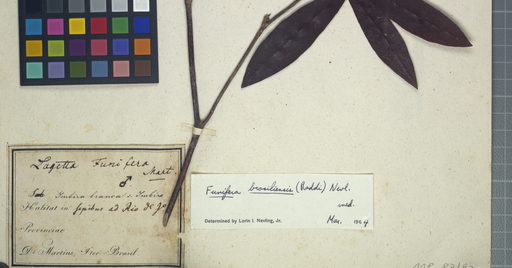 Lagetta Funifera
Mart.
♂
Imbira branca s. Imbira
Habitat in sepibus ad Rio de J
Provinciae
Dr Martius, Iter Brasil
Funifera brasiliensis (Raddi) Nevl.
ined.
Determined by Lorin I. Nevling, Jr. Mar. 1964